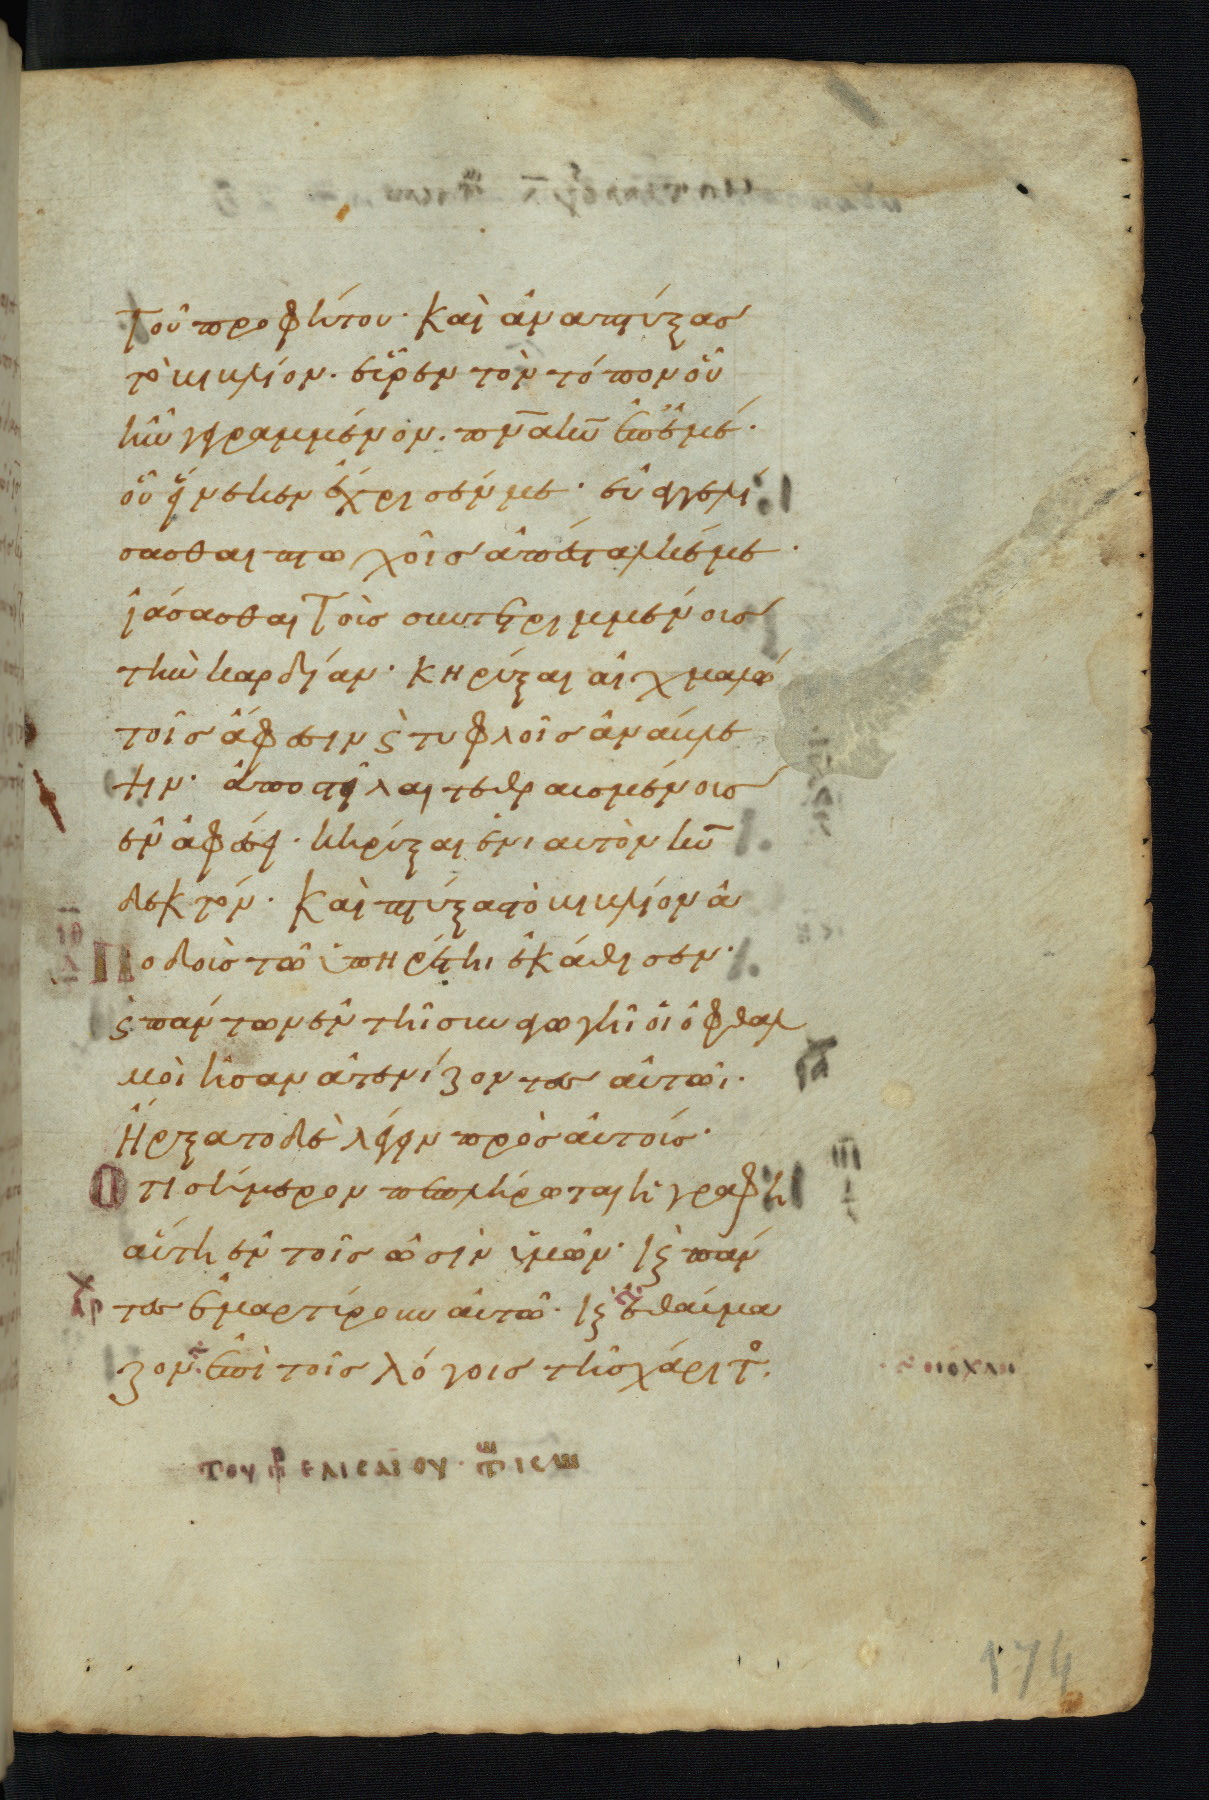 τοῦ προφήτου· καὶ ἀναπτύξας
τὸ βιβλίον· εὗρεν τὸν τόπον οὗ
ἦν γεγραμμένον· πν̅α κυ̅ ἐπ' ἐμέ·
οὗ εἵνεκεν ἔχρισέν με· εὐαγγελί
σασθαι πτωχοῖς ἀπέσταλκέ με·
ἰάσασθαι τοὺς συντετριμμένους
τὴν καρδίαν· κηρύξαι αἰχμαλώ
τοις ἄφεσιν ϛ τυφλοῖς ἀνάβλε
ψιν· ἀποστεῖλαι τεθραυσμένους
ἐν ἀφέσει· κηρύξαι ἐνιαυτὸν κυ̅
δεκτόν· καὶ πτύξας τὸ βιβλίον ἀ
ποδοὺς τῶ ὑπηρέτη ἐκάθισεν·
ϛ πάντων ἐν τῆ συναγωγῆ οἱ ὀφθαλ
μοὶ ἦσαν ἀτενίζοντες αὐτῶι·
Ἤρξατο δὲ λέγειν πρὸς αὐτούς·
Ὅτι σήμερον πεπλήρωται ἡ γραφὴ
αὕτη ἐν τοῖς ὠσὶν ὑμῶν· κϛ πάν
τες ἐμαρτύρουν αὐτῶ· κϛ ἐθαύμα
ζον ἐπὶ τοῖς λόγοις τῆς χάριτο
174